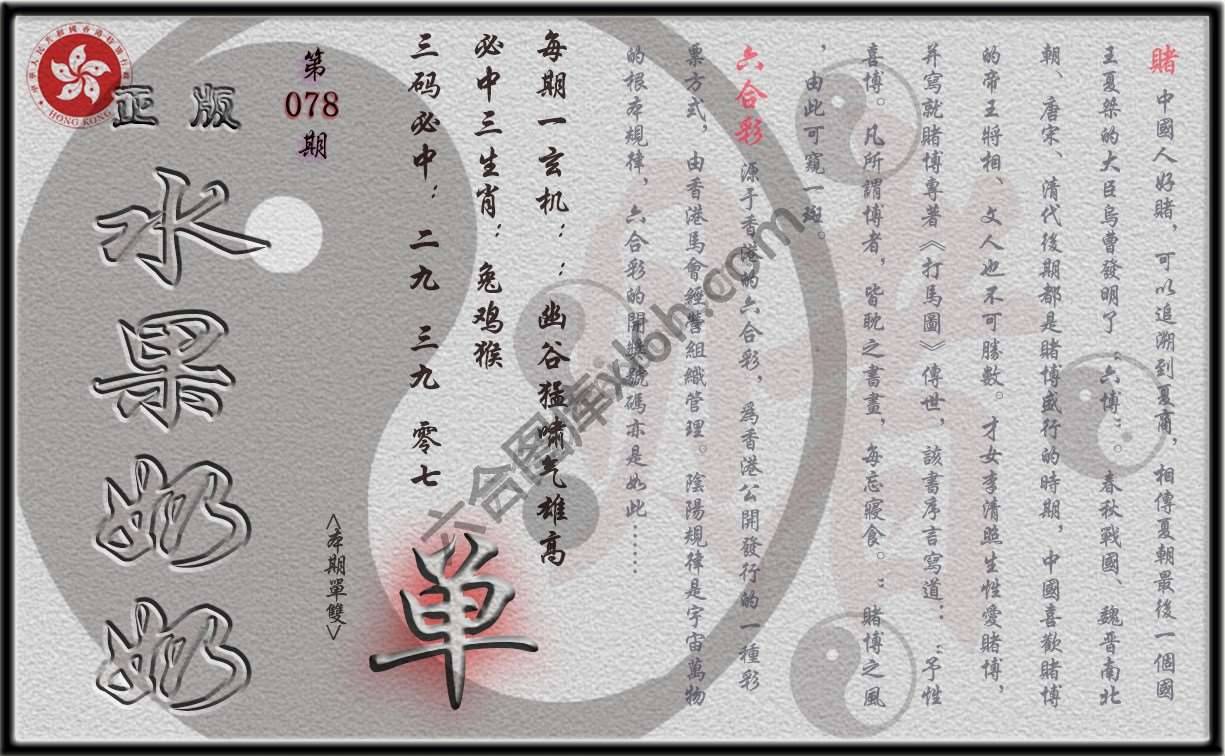 賭 中國人好賭，可以追溯到夏商，相傳夏朝最後一個國
王夏桀的大臣烏曹發明了“六博”。春秋戰國、魏晋南北
朝、唐宋、清代後期都是賭博盛行的時期，中國喜歡賭博
的帝王將相、文人也不可勝數。才女李清照生性愛賭博，
并寫就賭博專著《打馬圖》傳世，該書序言寫道：“予性
喜博。凡所謂博者，皆耽之書晝，每忘寢食。”賭博之風
，由此可窺一斑。
六合彩 源于香港的六合彩，爲香港公開發行的一種彩
票方式，由香港馬會經營組織管理。陰陽規律是宇宙萬物
的根本規律，六合彩的開獎號碼亦是如此……
每期一玄机：：幽谷猛啸气雄高
必中三生肖：兔鸡猴
三码必中：二九 三九 零七
單
<本期單雙>
第
078
期
正版
水果奶奶
HONG KONG
六合图库xloh.com